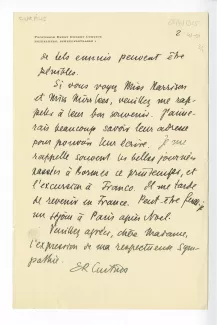 2
de tels ennuis peuvent être
pénibles.
Si vous voyez Miss Harrison
et Miss Mirrlees, veuillez me rap-
peler à leur bon souvenir. J'aime-
rais beaucoup savoir leur adresse
pour pouvoir leur écrire. Je me
rappelle souvent les belles journées
passées à Pontigny ce printemps, et
l'excursion à
Il me tarde
de revenir en France. Peut-être ferai-je
un séjour à Paris après Noël.
Veuillez agréer, chère Madame,
l'expression de ma respectueuse sym-
pathie.
ER Curtius